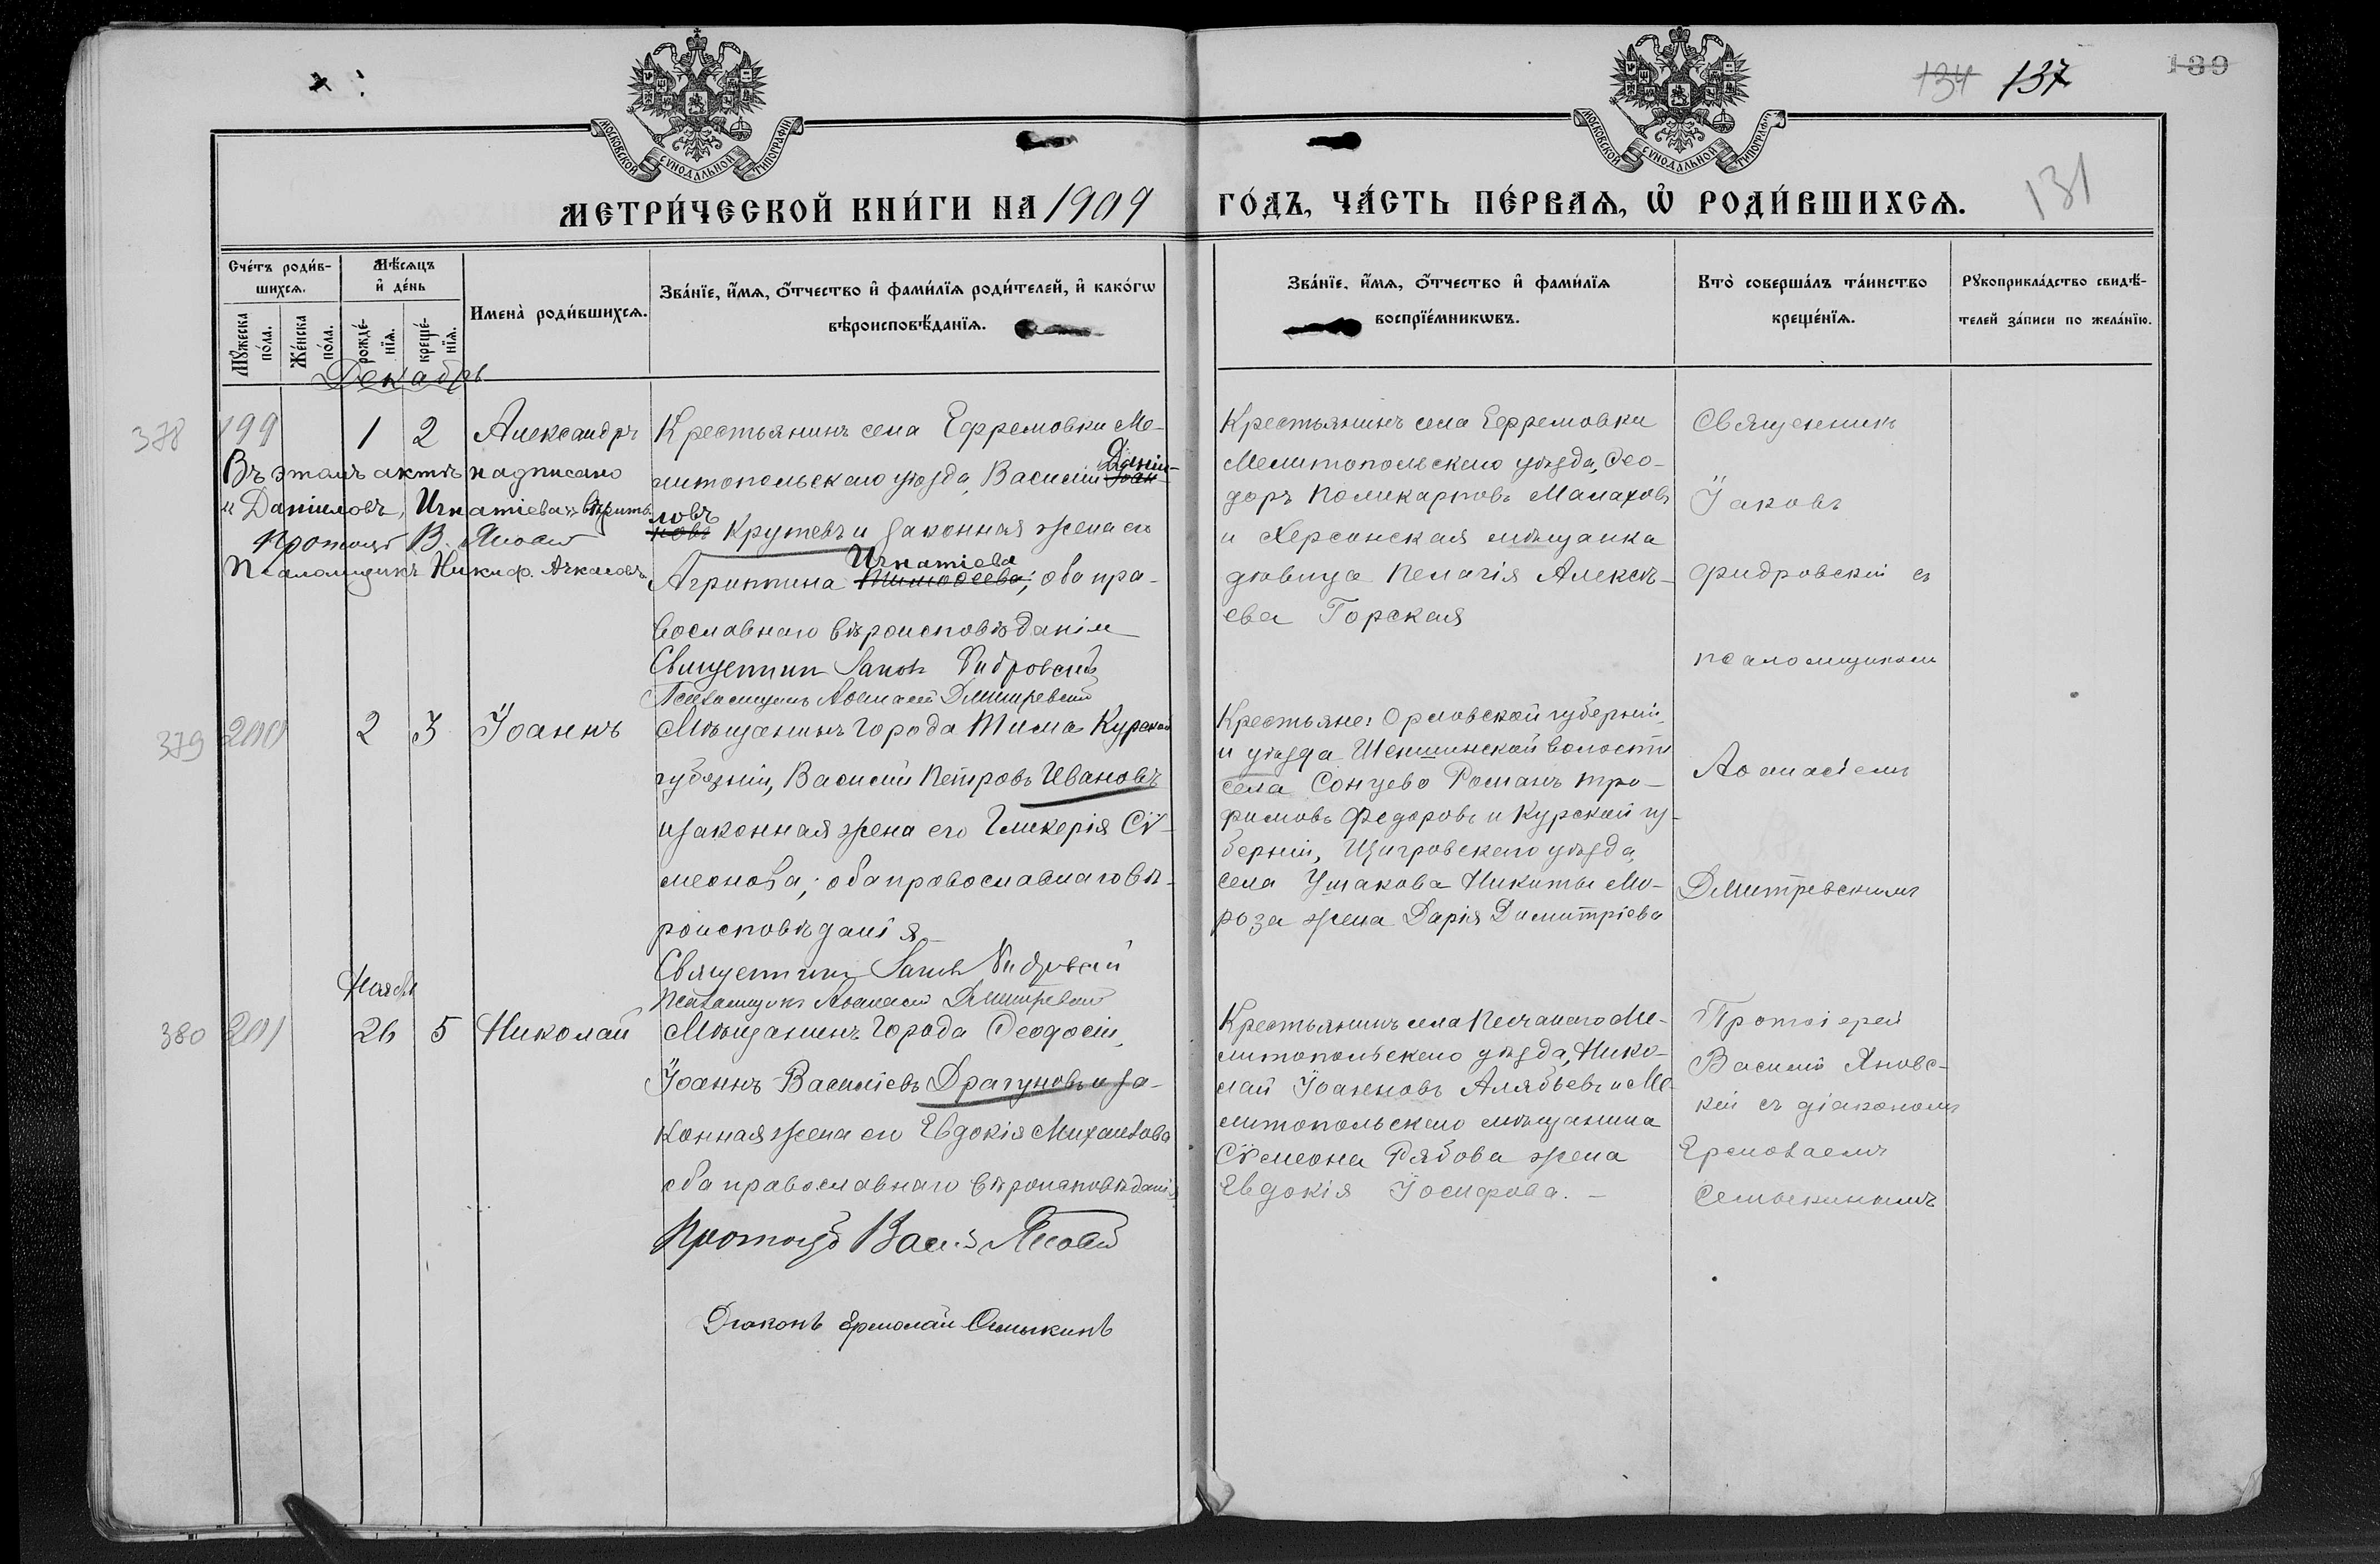 134 137
139
131
МОСКОВСКОЙ СѴНОДАЛЬНОЙ ТИПОГРАФІИ
МОСКОВСКОЙ СѴНОДАЛЬНОЙ ТИПОГРАФІИ
МЕТРИ́ЧЕСКОЙ КНИ́ГИ НА 1909 ГО́ДЪ, ЧА́СТЬ ПЕ́РВАѦ, Ѽ РОДИ́ВШИХСѦ.
Сче́тъ роди́в-
шихсѧ.
Мꙋ́жеска по́ла.
Же́нска по́ла.
Мѣ́сѧцъ
и҆ де́нь
рожде́-
нїѧ.
креще́-
нїѧ.
Имена̀ роди́вшихсѧ.
Зва́нїе, и҆́мѧ, ѻ҆́тчество и҆ фами́лїѧ роди́телей, и҆ како́гѡ
вѣроисповѣ́данїѧ.
Зва́нїе, и҆́мѧ, ѻ҆́тчество и҆ фами́лїѧ
воспрїе́мникѡвъ.
Кто̀ соверша́лъ та́инство
креще́нїѧ.
Рꙋкоприкла́дство свидѣ́-
телей за́писи по жела́нїю.
Декабрь
378 199 1 2 Александръ
Въ этомъ актѣ надписано
„Даніиловъ, Игнатіева" вѣрить
Протоіер. В. Яновскій
Псаломщикъ Никиф.
Крестьянинъ села Ефремовки Ме-
литопольскаго уѣзда, Василій Іоан- Даніи-
новъ ловъ Крутевъ и законная жена его
Агриппина Тимоѳеева Игнатіева; оба пра-
вославнаго вѣроисповѣданія
Священникъ Іаковъ Фидровскій
Псаломщикъ Аѳанасій Дмитревскій
Крестьянинъ села Ефремовки
Мелитопольскаго уѣзда, Ѳео-
доръ Поликарповъ Малаховъ
и Херсонская мѣщанка
дѣвица Пелагія Алексѣ-
ева Горская
Священникъ
Іаковъ
Фидровскій съ
псаломщикомъ
379 200 2 3 Іоаннъ
Мѣщанинъ города Тима Курской
губерніи, Василій Петровъ Ивановъ
и законная жена его Гликерія Сѵ-
меонова; оба православнаго вѣ-
роисповѣданія
Священникъ Іаковъ Фидровскій
Псаломщикъ Аѳанасій Дмитревскій
Крестьяне: Орловской губерніи
и уѣзда Шеншинской волости
села Сонцево Романъ Тро-
фимовъ Федоровъ и Курской гу-
берніи, Щигровскаго уѣзда,
села Ушакова Никиты Мо-
роза жена Дарія Димитріева
Аѳанасіемъ
Дмитревскимъ
Ноябрь
380 201 26 5 Николай
Мѣщанинъ города Ѳеодосіи,
Іоаннъ Василіевъ Драгуновъ и за-
конная жена его Евдокія Михаилова
оба православнаго вѣроисповѣданія
Протоіерей Василій Яновскій
Діаконъ Ермолай Семыкинъ
Крестьянинъ села Песчанаго Ме-
литопольскаго уѣзда, Нико-
лай Іоанновъ Алябьевъ и Ме-
литопольскаго мѣщанина
Сѵмеона Рябова жена
Евдокія Іосифова. —
Протоіерей
Василій Яновс-
кій съ діакономъ
Ермолаемъ
Семыкинымъ